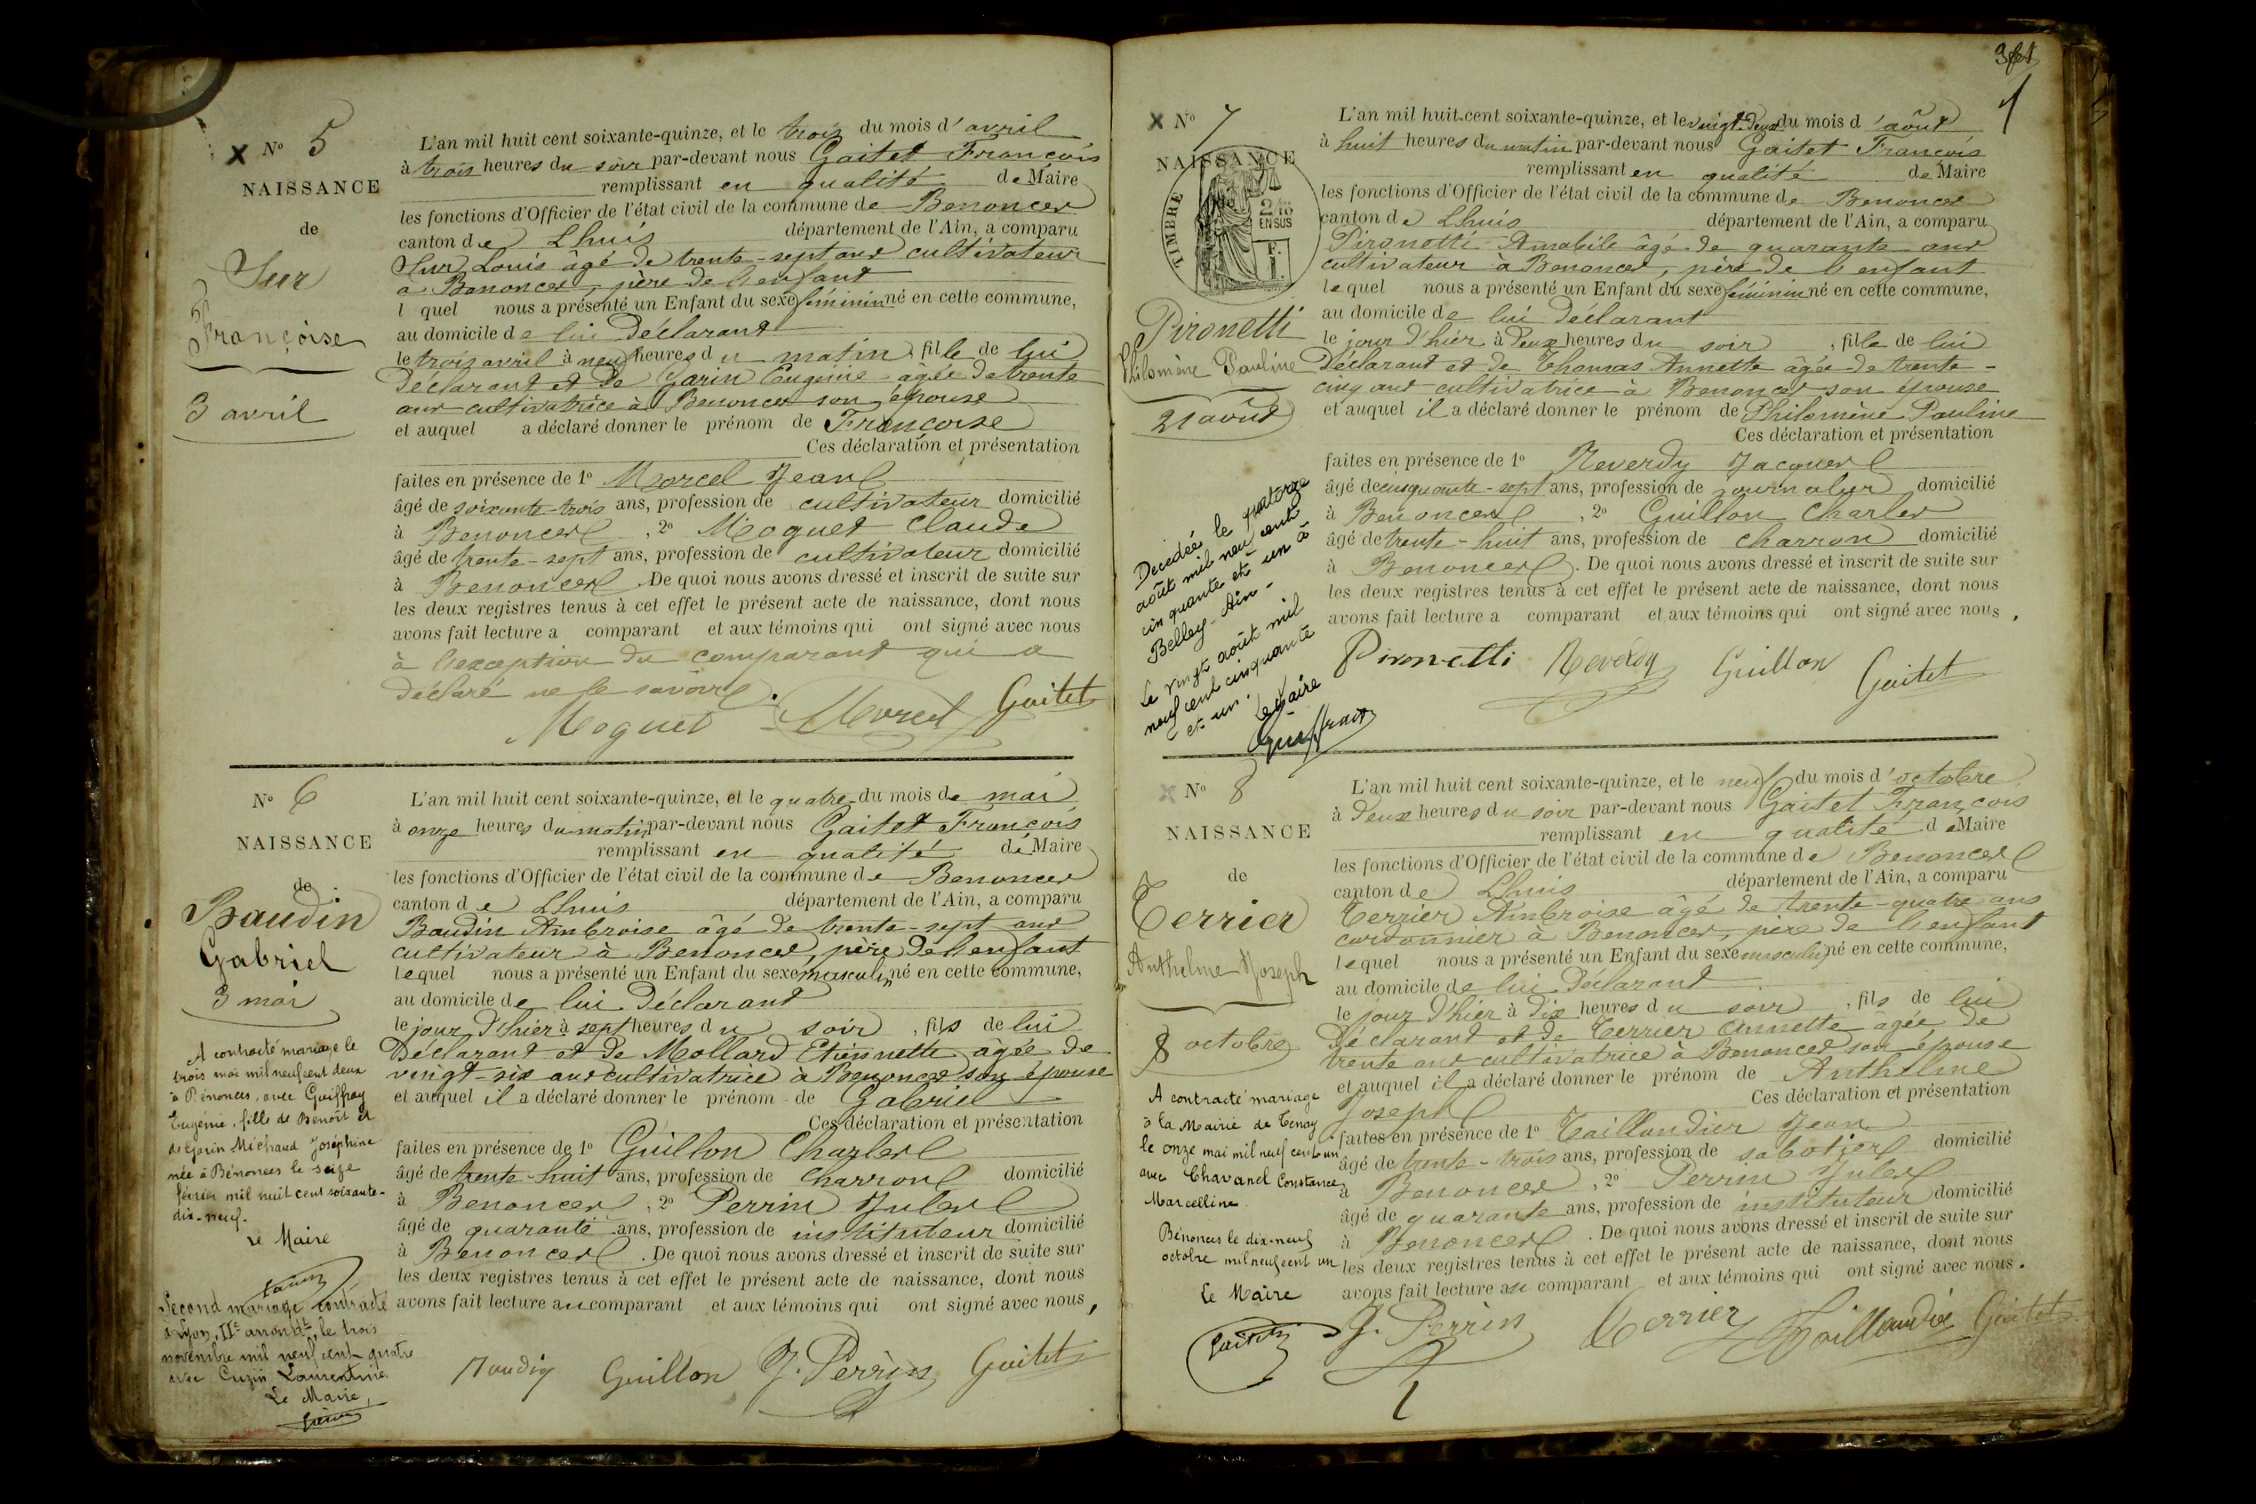 × N° 5
NAISSANCE
de
Sur
Françoise
3 avril
L'an mil huit cent soixante-quinze, et le trois du mois d'avril
à trois heures du soir par-devant nous Gaitet François
remplissant en qualité de Maire
les fonctions d'Officier de l'état civil de la commune de Benonces
canton de Lhuis département de l'Ain, a comparu
Sur Louis âgé de trente-sept ans cultivateur
à Benonces, père de l'enfant
l quel nous a présenté un Enfant du sexe féminin né en cette commune,
au domicile de lui déclarant
le trois avril à neuf heures du matin, fille de lui
déclarant et de Garin Eugénie âgée de trente
ans cultivatrice à Benonces son épouse
et auquel a déclaré donner le prénom de Françoise
Ces déclaration et présentation
faites en présence de 1° Morcel Jean
âgé de soixante-trois ans, profession de cultivateur domicilié
à Benonces, 2° Moguet Claude
âgé de trente-sept ans, profession de cultivateur domicilié
à Benonces. De quoi nous avons dressé et inscrit de suite sur
les deux registres tenus à cet effet le présent acte de naissance, dont nous
avons fait lecture a comparant et aux témoins qui ont signé avec nous
à l'exception du comparant qui a
déclaré ne le savoir.
Moguet Morcel Gaitet
N° 6
NAISSANCE
de
Baudin
Gabriel
3 mai
A contracté mariage le
trois mai mil neuf cent deux
à Bénonces, avec Guiffray
Eugénie, fille de Benoît et
de Michaud Joséphine
née à Bénonces le seize
février mil huit cent soixante-
dix-neuf.
Le Maire
Second mariage contracté
à Lyon, IIe arrondt, le trois
novembre mil neuf cent quatre
avec Cuzin Laurentine
Le Maire,
L'an mil huit cent soixante-quinze, et le quatre du mois de mai
à onze heures du matin par-devant nous Gaitet François
remplissant en qualité de Maire
les fonctions d'Officier de l'état civil de la commune de Benonces
canton de Lhuis département de l'Ain, a comparu
Baudin Ambroise âgé de trente-sept ans
cultivateur à Benonces, père de l'enfant
lequel nous a présenté un Enfant du sexe masculin né en cette commune,
au domicile de lui déclarant
le jour d'hier à sept heures du soir, fils de lui
Déclarant et de Mollard Etiennette âgée de
vingt-six ans cultivatrice à Benonces son épouse
et auquel il a déclaré donner le prénom de Gabriel
Ces déclaration et présentation
faites en présence de 1° Guillon Charles
âgé de trente-huit ans, profession de charron domicilié
à Benonces, 2° Perrin Jules
âgé de quarante ans, profession de instituteur domicilié
à Benonces. De quoi nous avons dressé et inscrit de suite sur
les deux registres tenus à cet effet le présent acte de naissance, dont nous
avons fait lecture au comparant et aux témoins qui ont signé avec nous,
Baudin Guillon J. Perrin Gaitet
× N° 7
NAISSANCE
TIMBRE
2/10
EN SUS
Pironetti
Philomène Pauline
21 août
Décédée le quatorze
août mil neuf cent
cinquante et un à
Belley-Ain-
Le vingt août mil
neuf cent cinquante
et un.
Le Maire
L'an mil huit cent soixante-quinze, et le vingt-deux du mois d'août
à huit heures du matin par-devant nous Gaitet François
remplissant en qualité de Maire
les fonctions d'Officier de l'état civil de la commune de Benonces
canton de Lhuis département de l'Ain, a comparu
Pironetti Amabile âgé de quarante ans
cultivateur à Benonces, père de l'enfant
lequel nous a présenté un Enfant du sexe féminin né en cette commune,
au domicile de lui déclarant
le jour d'hier à deux heures du soir, fille de lui
Déclarant et de Thomas Annette âgée de trente-
cinq ans cultivatrice à Benonces son épouse
et auquel il a déclaré donner le prénom de Philomène Pauline
Ces déclaration et présentation
faites en présence de 1° Reverdy Jacques
âgé de cinquante-sept ans, profession de journalier domicilié
à Benonces, 2° Guillon Charles
âgé de trente-huit ans, profession de charron domicilié
à Benonces. De quoi nous avons dressé et inscrit de suite sur
les deux registres tenus à cet effet le présent acte de naissance, dont nous
avons fait lecture a comparant et aux témoins qui ont signé avec nous.
Pironetti Reverdy Guillon Gaitet
× N° 8
NAISSANCE
de
Terrier
Anthelme Joseph
8 octobre
A contracté mariage
à la Mairie de Tenay
le onze mai mil neuf cent un
avec Chavanel Constance
Marcelline.
Bénonces le dix-neuf
octobre mil neuf cent un
Le Maire
Gaitet
L'an mil huit cent soixante-quinze, et le neuf du mois d'octobre
à deux heures du soir par-devant nous Gaitet François
remplissant en qualité de Maire
les fonctions d'Officier de l'état civil de la commune de Benonces
canton de Lhuis département de l'Ain, a comparu
Terrier Ambroise âgé de trente-quatre ans
cordonnier à Benonces, père de l'enfant
lequel nous a présenté un Enfant du sexe masculin né en cette commune,
au domicile de lui Déclarant
le jour d'hier à dix heures du soir, fils de lui
Déclarant et de Terrier Annette âgée de
trente ans cultivatrice à Benonces son épouse
et auquel il a déclaré donner le prénom de Anthelme
Joseph Ces déclaration et présentation
faites en présence de 1° Taillandier Jean
âgé de trente-trois ans, profession de sabotier domicilié
à Benonces, 2° Perrin Jules
âgé de quarante ans, profession de instituteur domicilié
à Benonces. De quoi nous avons dressé et inscrit de suite sur
les deux registres tenus à cet effet le présent acte de naissance, dont nous
avons fait lecture au comparant et aux témoins qui ont signé avec nous.
J. Perrin Terrier Taillandier Gaitet